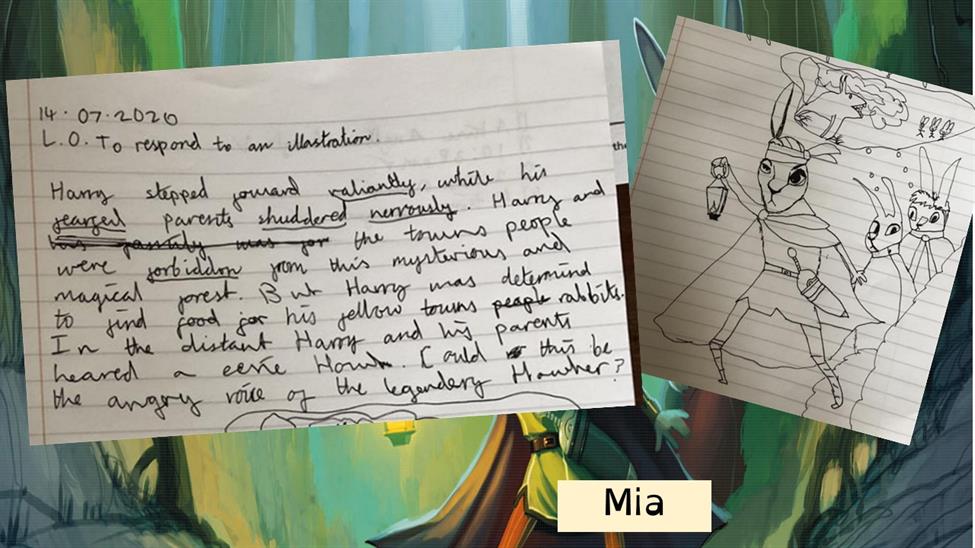 14.07.2020
L.O. To respond to an illastration.
Harry stepped forward valiantly, while his
fearful parents shuddered nervously. Harry and
his family was for the towns people
were forbiddon from this mysterious and
magical forest. But Harry was determind
to find food for his fellow towns people rabbits.
In the distant Harry and his parents
heared a eerie Howl. Could this be
the angery voice of the legendery Howher?
the
Mia